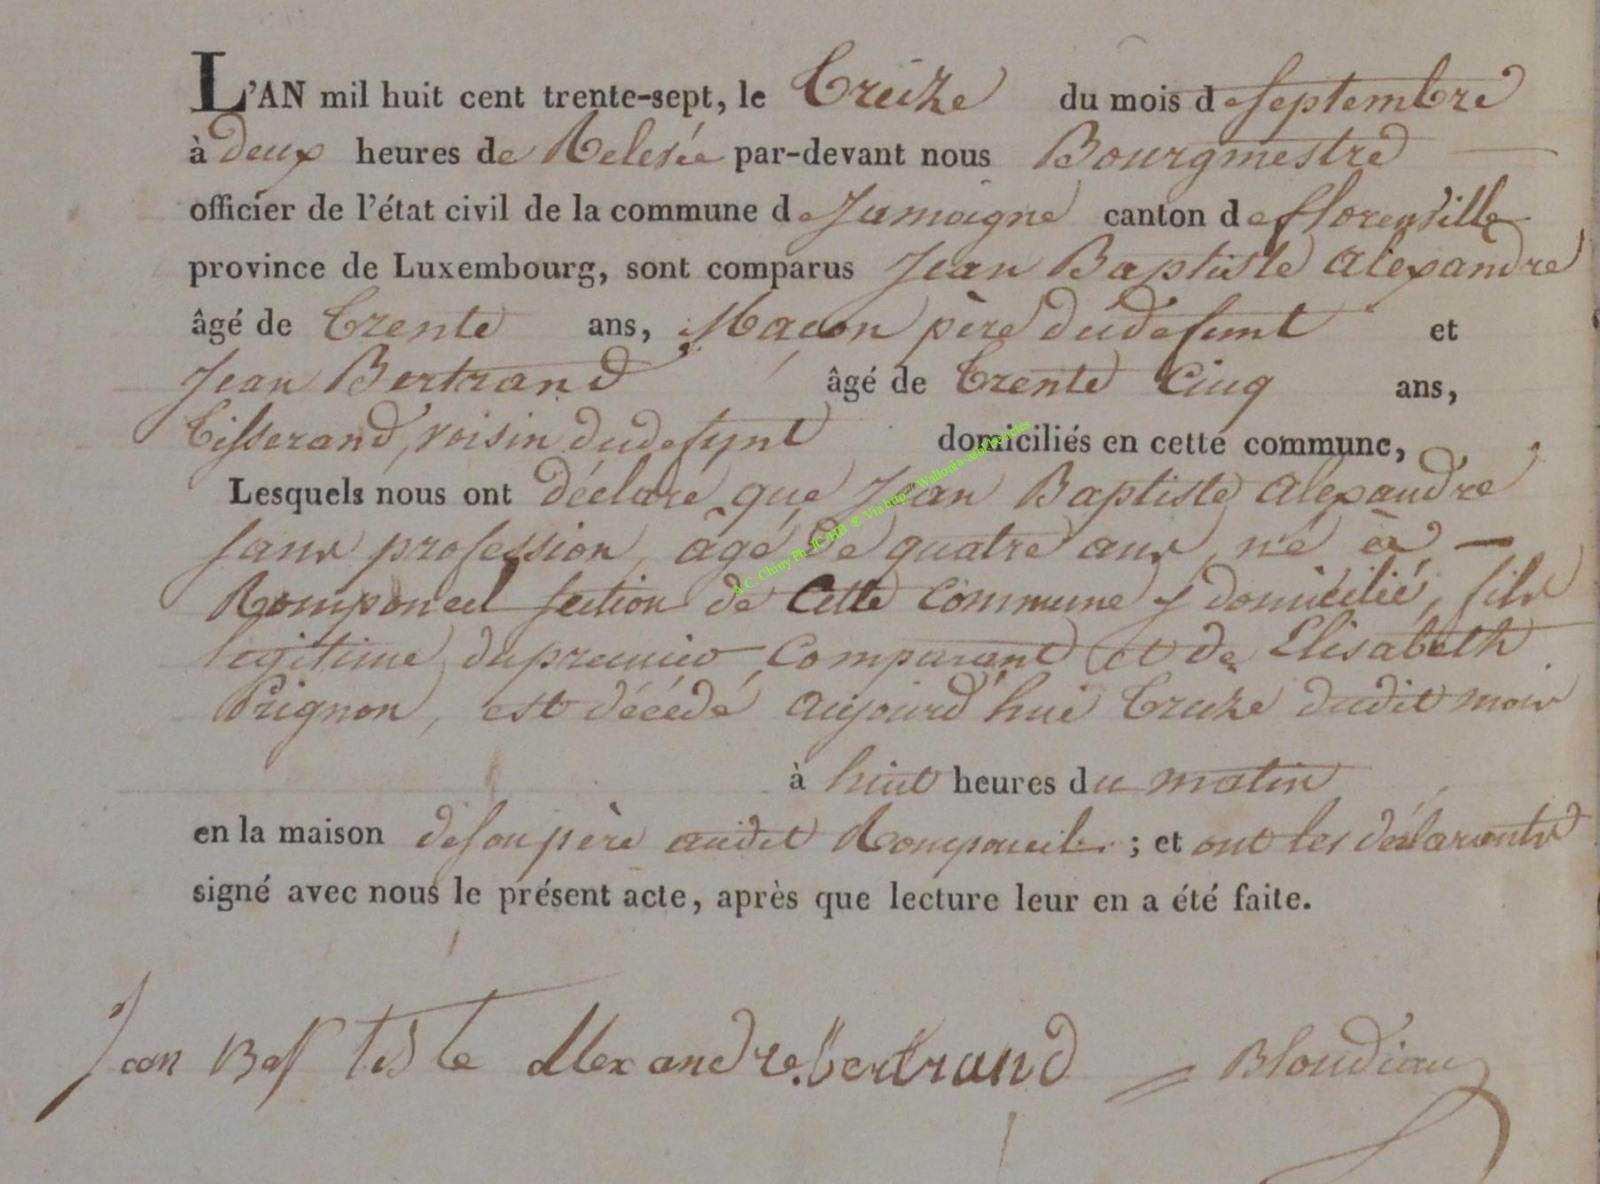 L'AN mil huit cent trente-sept, le Treize du mois de Septembre
à deux heures de Relevée par-devant nous Bourgmestre
officier de l'état civil de la commune de Jamoigne canton de florenville
province de Luxembourg, sont comparus Jean Baptiste Alexandre
âgé de Trente ans, Maçon père dudefunt et
Jean Bertrand âgé de Trente Cinq ans,
Tisserand, voisin dudefunt domiciliés en cette commune,
Lesquels nous ont déclaré que Jean Baptiste Alexandre
sans profession, âgé de quatre ans, né à
Romponcel section de Cette Commune y domicilié, fils
légitime dupremier Comparant et de Elisabeth
Prignon, est décédé aujourd'hui Treize dudit mois
à huit heures du matin
en la maison desonpère audit Romponcel ; et ont les déclarants
signé avec nous le présent acte, après que lecture leur en a été faite.
Jean Baptiste Alexandre bertrand Blondiau